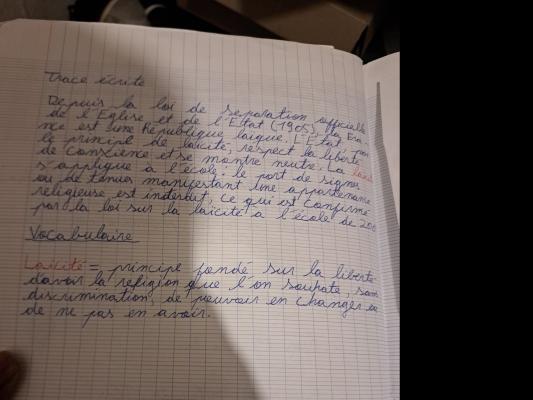 Trace écrite
Depuis la loi de separation officielle
de l'Eglise et de l'Etat (1905), la Fra-
nce est une République laïque. L'Etat, par
le principe de laïcité, respect la liberté
de Conscience et se montre neutre. La laïc
s'applique à l'école : le port de signes
ou de tenues manifestant une appartenance
religieuse est interdit, ce qui est confirmé
par la loi sur la laïcité à l'école de 200
Vocabulaire
Laïcité = principe fondé sur la liberté
d'avoir la religion que l'on souhate, sans
discrimination, de pouvoir en changer ou
de ne pas en avoir.